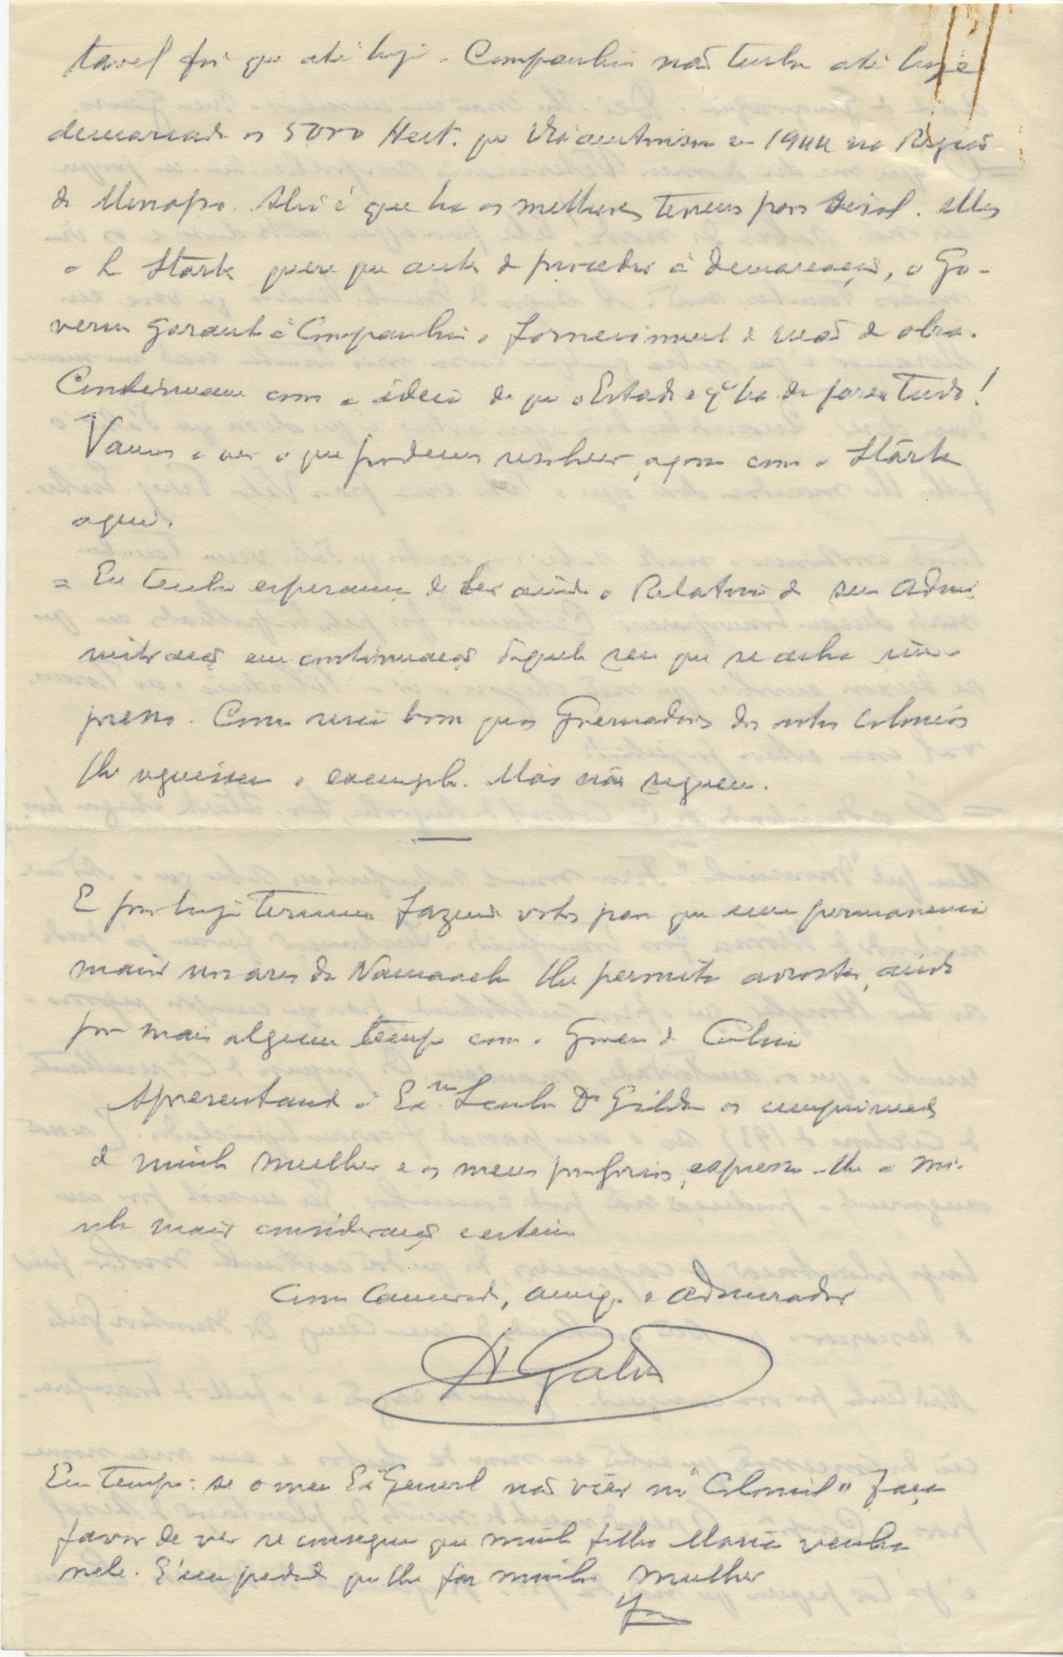 tavel foi que até hoje a Companhia não tenha até hoje
demarcado os 5000 Hect. que lhe autorisou em 1944 na Região
de Monapo. Ali é que ha os melhores terrenos para Sisal. Mas
o Stark quere que antes de proceder á demarcação, o Go-
verno garanta á Companhia o fornecimento de mão de obra.
Continuam com a ideia de que o Estado é q ha de fazer tudo!
Vamos a ver o que podemos resolver, agora com o Stark
aqui.
= Eu tenho esperança de ler ainda o Relatorio da sua Admi
nistração em continuação daquele seu que se acha im-
presso. Como seria bom que os Governadores das outras colonias
lhe seguissem o exemplo. Mas não seguem.
E por hoje termino fazendo votos para que uma permanencia
maior nos ares da Namaacha lhe permita arrostar, ainda
por mais algum tempo com o Governo da Colonia
Apresentando á Exma Senhora D. Gilda os cumprimentos
de minha mulher e os meus proprios, expresso-lhe a mi-
nha maior consideração e estima
Como Camarada, amigo e admirador
Galvão
Em tempo: se o meu Exo General não vier no "Colonial" faça
favor de ver se consegue que minha filha Maria venha
nele. É um pedido que lhe faz minha mulher